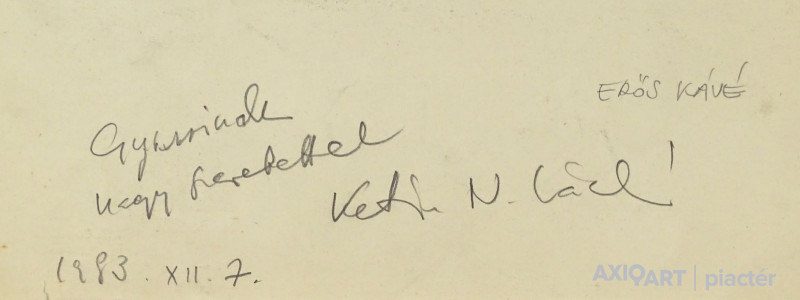 ERŐS KÁVÉ
nagy szeretettel
N. László
1983. XII. 7.
AXIOART | piactér